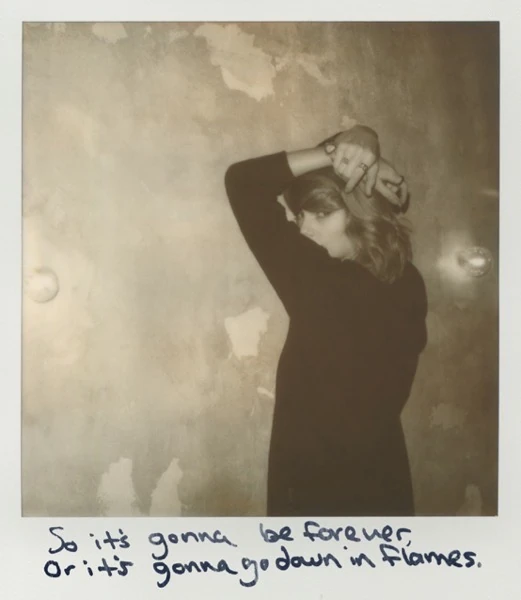 So it's gonna be forever,
Or it's gonna go down in flames.